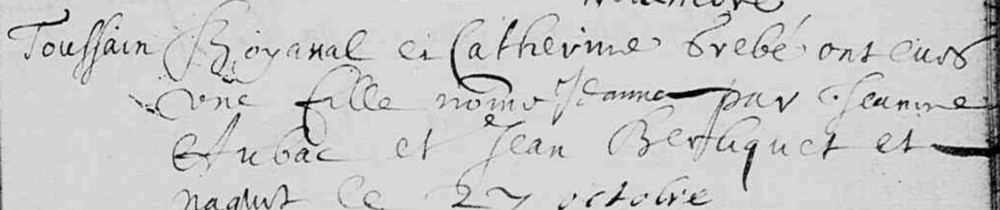 Toussain Royanal et Catherine Grebé ont eurs
une fille nomé Jeanne par Jeanne
Aubac et Jean Berluquet et
naquit le 27 octobre